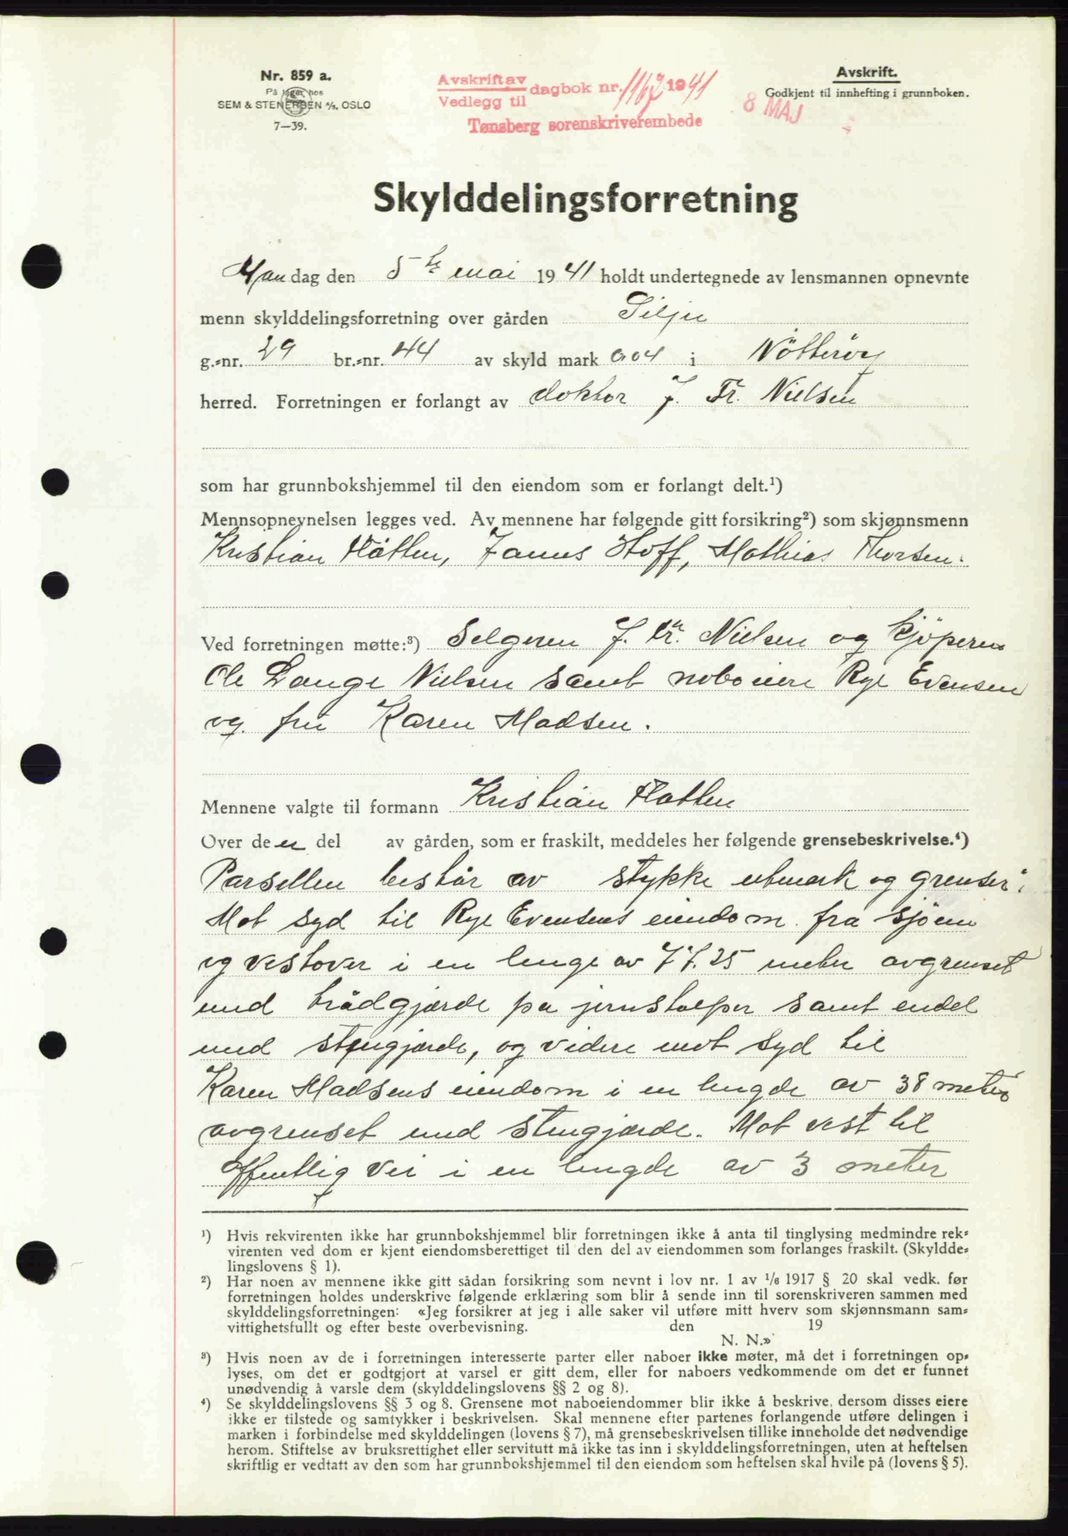 Nr. 859 a.
På lager hos
SEM & STENERSEN A/S, OSLO
7—39.
Avskrift av
Vedlegg til
dagbok nr. 1167 1941
Tønsberg sorenskriverembede
8 MAJ
Avskrift.
Godkjent til innhefting i grunnboken.
Skylddelingsforretning
Mandag den 5te mai 1941 holdt undertegnede av lensmannen opnevnte
menn skylddelingsforretning over gården Silju
g.-nr. 29 br.-nr. 44 av skyld mark 0.04 i Nötteröy
herred. Forretningen er forlangt av doktor J. Fr. Nielsen
som har grunnbokshjemmel til den eiendom som er forlangt delt.¹)
Mennsopnevnelsen legges ved. Av mennene har følgende gitt forsikring²) som skjønnsmenn
Kristian Flåtten, Hoff, Mathias Thorsen.
Ved forretningen møtte:³) Selgeren J. Fr. Nielsen og kjöperen
Ole Lange Nielsen samt naboeiere Rye Evensen
og fru Karen Madsen.
Mennene valgte til formann Kristian Flåtten
Over den del av gården, som er fraskilt, meddeles her følgende grensebeskrivelse.⁴)
Parsellen består av stykke utmark og grenser:
Mot syd til Rye Evensens eiendom fra sjöen
og vestover i en lenge av 77.25 meter avgrenset
med trådgjærde på jernstolper samt endel
med stengjærde, og videre mot syd til
Karen Madsens eiendom i en lengde av 38 meter
avgrenset med stengjærde. Mot vest til
offentlig vei i en lengde av 3 meter
¹) Hvis rekvirenten ikke har grunnbokshjemmel blir forretningen ikke å anta til tinglysing medmindre rek-
virenten ved dom er kjent eiendomsberettiget til den del av eiendommen som forlanges fraskilt. (Skyldde-
lingslovens § 1).
²) Har noen av mennene ikke gitt sådan forsikring som nevnt i lov nr. 1 av 1/6 1917 § 20 skal vedk. før
forretningen holdes underskrive følgende erklæring som blir å sende inn til sorenskriveren sammen med
skylddelingsforretningen: «Jeg forsikrer at jeg i alle saker vil utføre mitt hverv som skjønnsmann sam-
vittighetsfullt og efter beste overbevisning. den 19
N. N.»
³) Hvis noen av de i forretningen interesserte parter eller naboer ikke møter, må det i forretningen op-
lyses, om det er godtgjort at varsel er gitt dem, eller for naboers vedkommende om det er funnet
unødvendig å varsle dem (skylddelingslovens §§ 2 og 8).
⁴) Se skylddelingslovens §§ 3 og 8. Grensene mot naboeiendommer blir ikke å beskrive, dersom disses eiere
ikke er tilstede og samtykker i beskrivelsen. Skal mennene efter partenes forlangende utføre delingen i
marken i forbindelse med skylddelingen (lovens § 7), må grensebeskrivelsen tillike inneholde det nødvendige
herom. Stiftelse av bruksrettighet eller servitutt må ikke tas inn i skylddelingsforretningen, uten at heftelsen
skriftlig er vedtatt av den som har grunnbokshjemmel til den eiendom som heftelsen skal hvile på (lovens § 5).